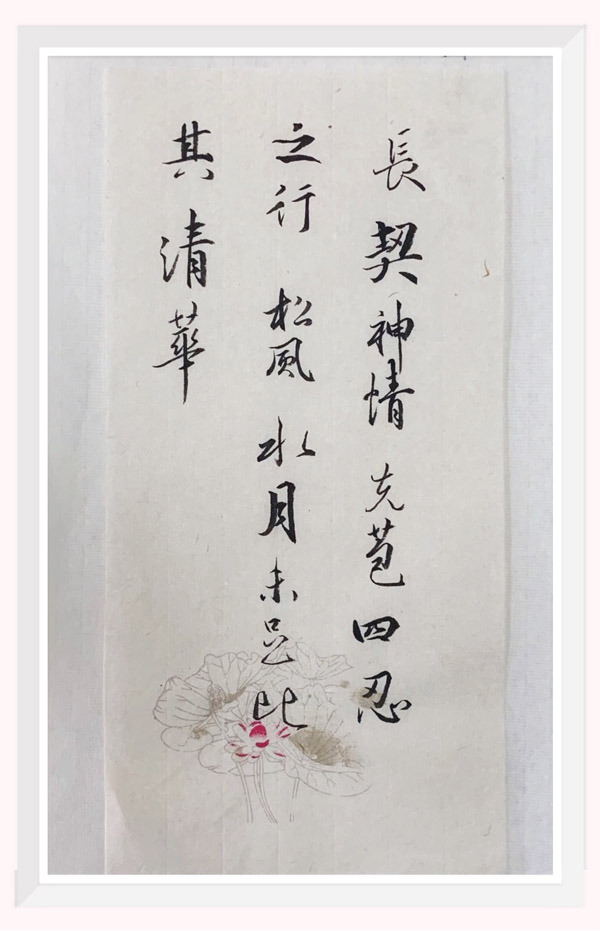 長契神情先苞四忍
之行松風水月未足比
其清華